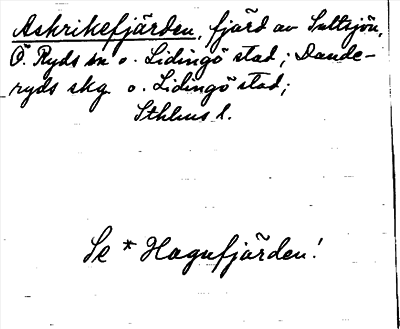 Askrikefjärden, fjärd av Saltsjön,
Ö. Ryds sn o. Lidingö stad; Dande-
ryds skg o. Lidingö stad;
Sthlms l.
Se * Hagnfjärden!